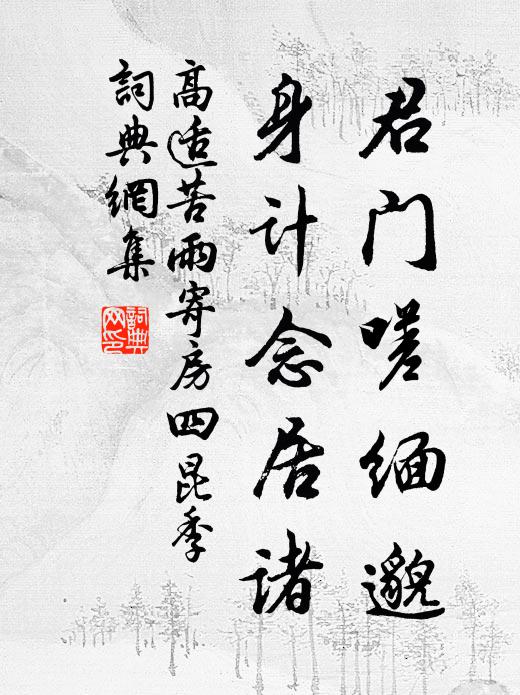 君门嗟缅邈
身计念居诸
高适苦雨寄房四昆季
词典网集
词典网印